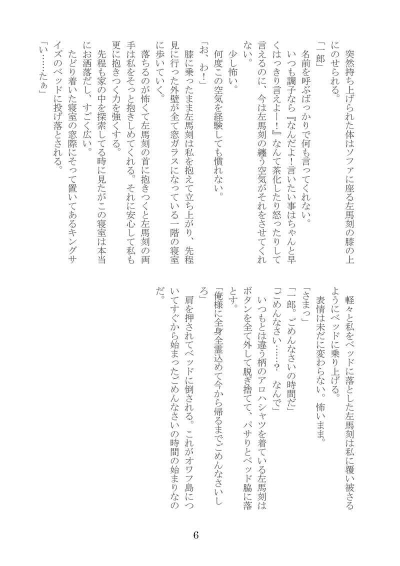 突然持ち上げられた体はソファに座る左馬刻の膝の上
にのせられる。
「一郎」
　名前を呼ぶばっかりで何も言ってくれない。
　いつも調子なら『なんだよ！言いたい事はちゃんと早
くはっきり言えよー！』なんて茶化したり怒ったりして
言えるのに、今は左馬刻の纏う空気がそれをさせてくれ
ない。
　少し怖い。
　何度この空気を経験しても慣れない。
「お、わ！」
　膝に乗ったまま左馬刻は私を抱えて立ち上がり、先程
見に行った外壁が全て窓ガラスになっている一階の寝室
に歩いていく。
　落ちるのが怖くて左馬刻の首に抱きつくと左馬刻の両
手は私をそっと抱きしめてくれる。それに安心して私も
更に抱きつく力を強くする。
　先程も家の中を探索してる時に見たがこの寝室は本当
にお洒落だし、すごく広い。
　たどり着いた寝室の窓際にそって置いてあるキングサ
イズのベッドに投げ落とされる。
「い……たぁ」
　軽々と私をベッドに落とした左馬刻は私に覆い被さる
ようにベッドに乗り上げる。
　表情は未だに変わらない。怖いまま。
「さまっ」
「一郎。ごめんなさいの時間だ」
「ごめんなさい……？　なんで」
　いつもとは違う柄のアロハシャツを着ている左馬刻は
ボタンを全て外して脱ぎ捨てて、バサリとベッド脇に落
とす。
「俺様に全身全霊込めて今から帰るまでごめんなさいし
ろ」
　肩を押されてベッドに倒される。これがオワフ島につ
いてすぐから始まったごめんなさいの時間の始まりなの
だ。
6